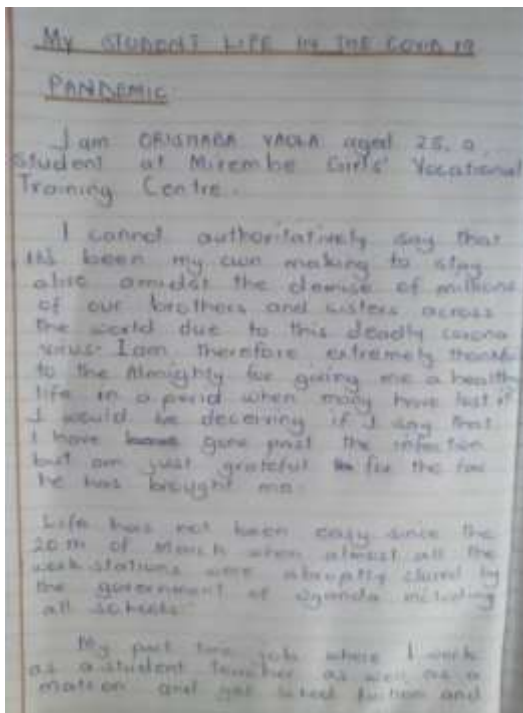 My STUDENT LIFE IN THE COVID 19
PANDEMIC
I am ORISHABA aged 25, a
student at Mirembe Girls' Vocational
Training Centre.
I cannot authoritatively say that
its been my own making to stay
alive amidst the demise of millions
of our brothers and sisters across
the world due to this deadly corona
virus. I am therefore extremely
to the Almighty for giving me a healthy
life in a period when many have lost it
I would be deceiving if I say that
I have gone past the infection
but am just grateful for the far
he has brought me.
Life has not been easy since the
20th of March when almost all the
work stations were abruptly closed by
the government of Uganda including
all schools.
My part time job where I work
as a student teacher as well as a
matron and get school tuition and